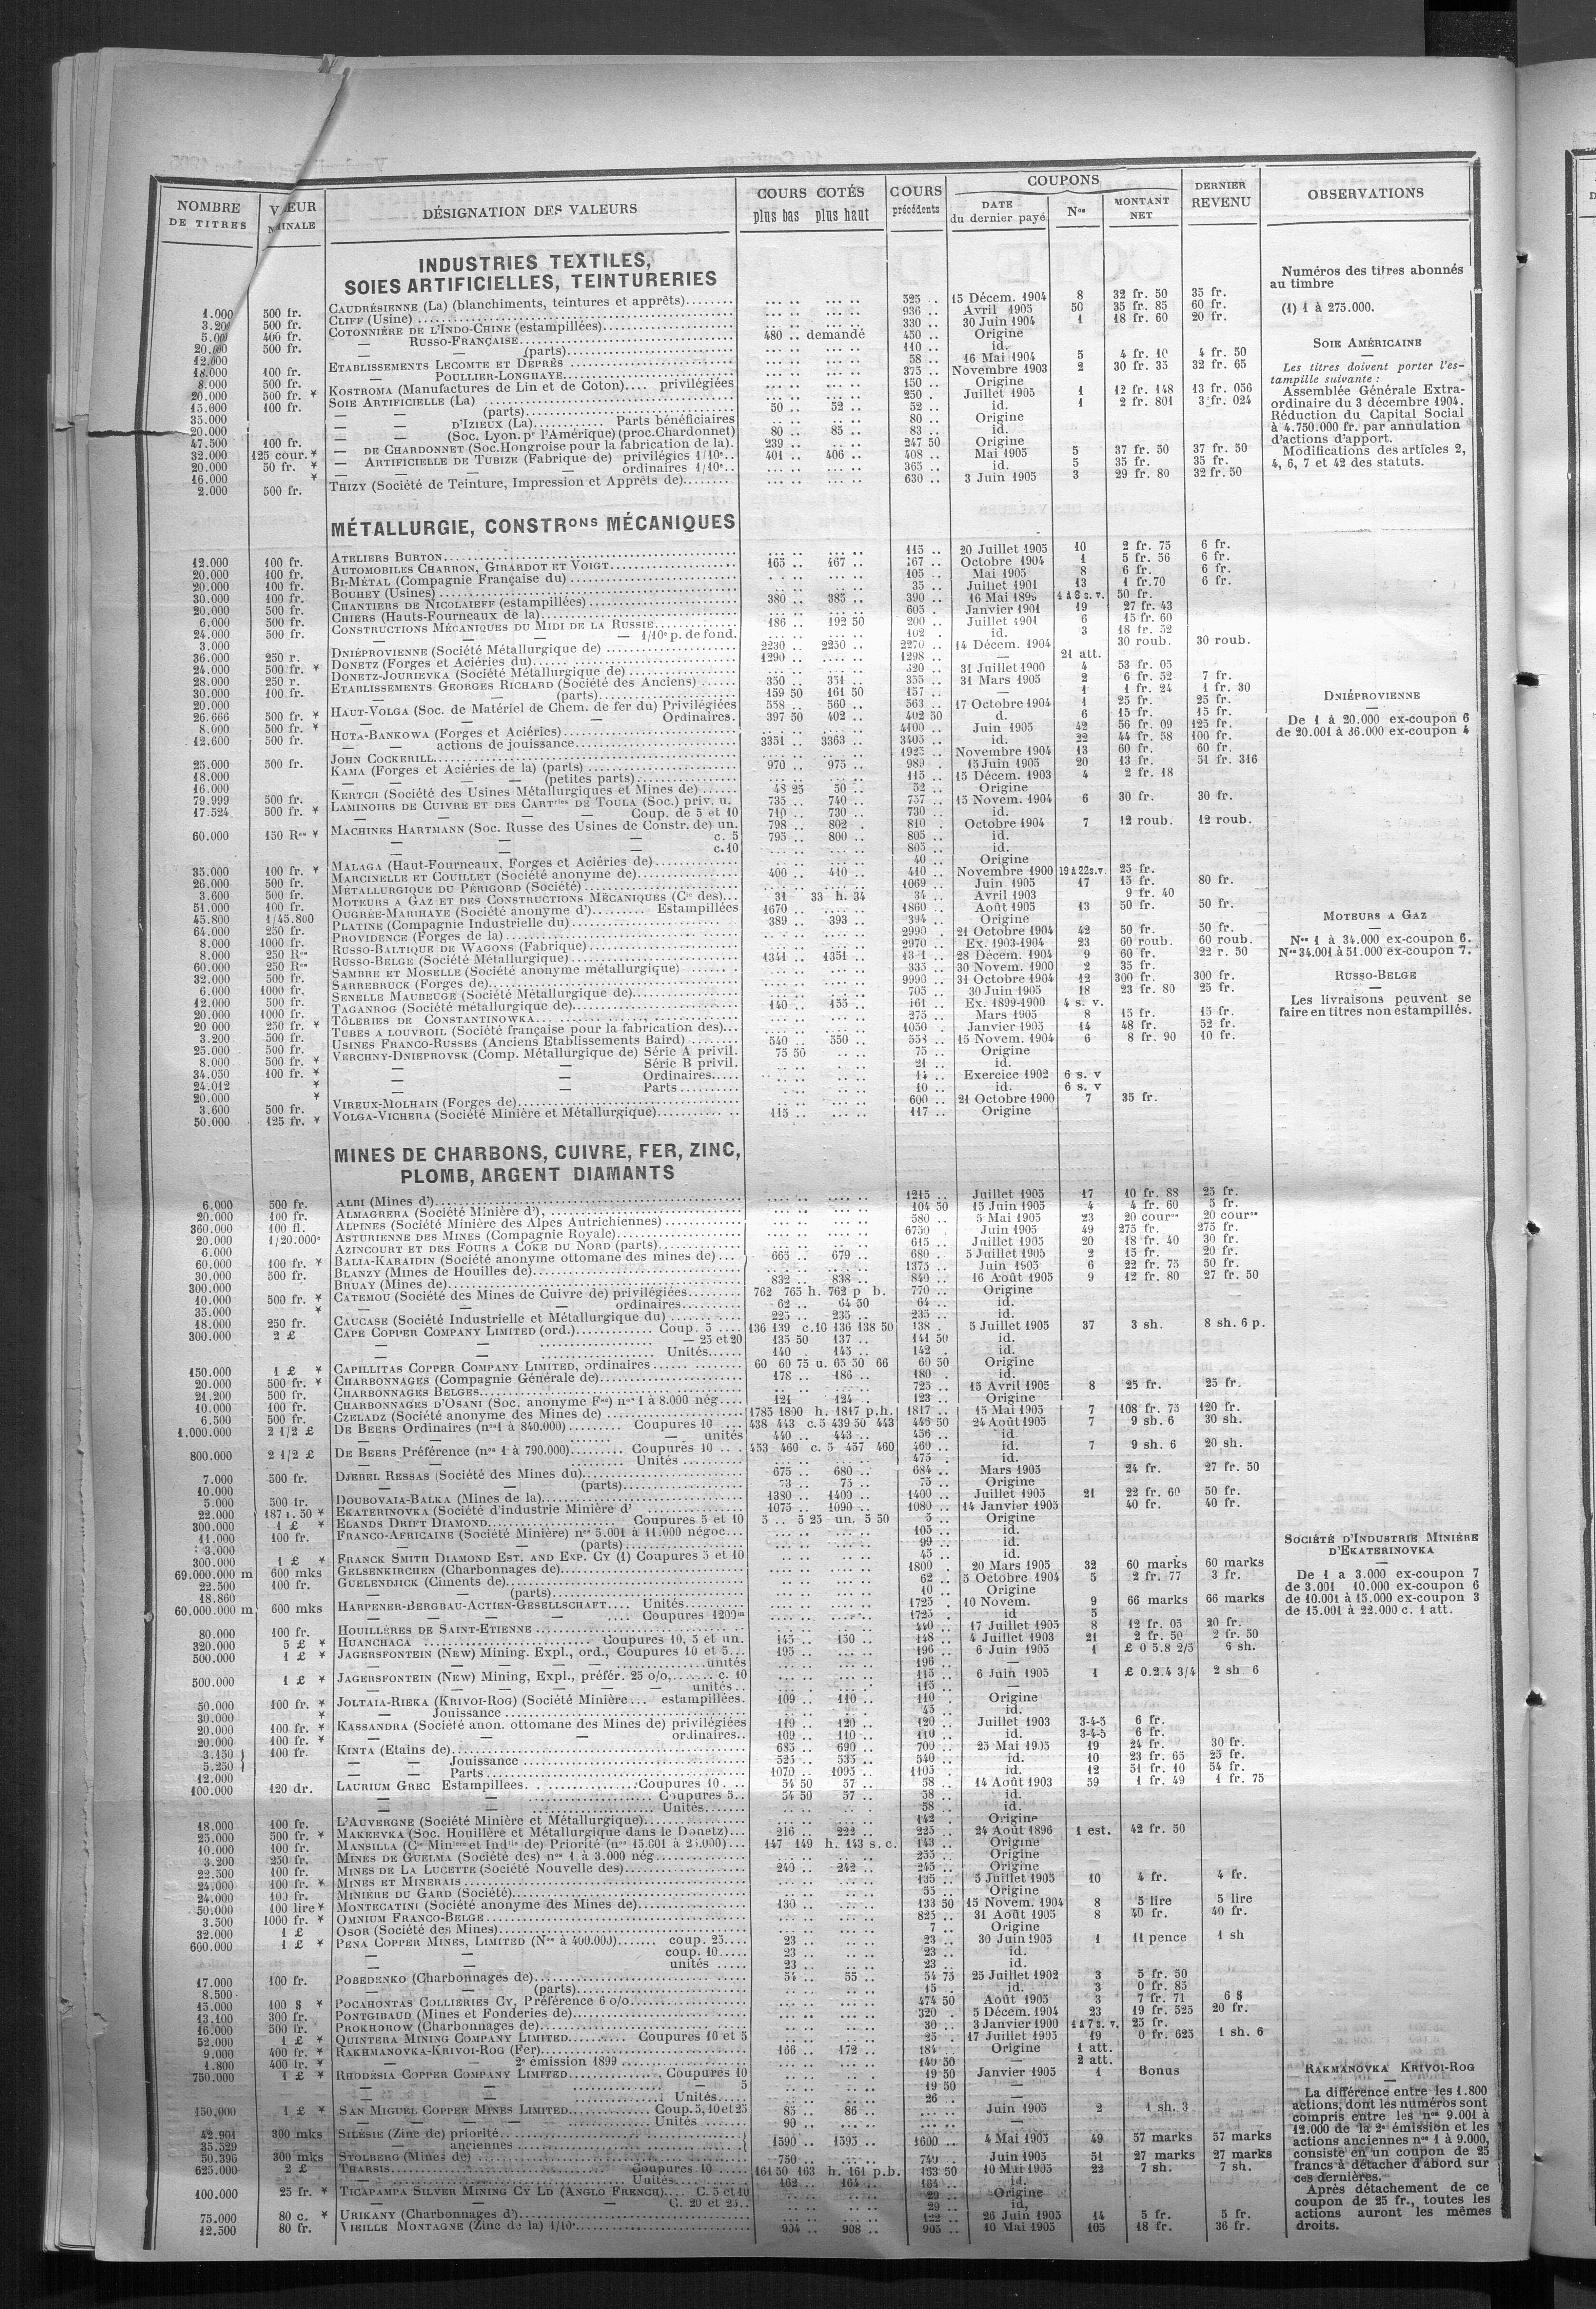 NOMBRE DE TITRES | VALEUR NOMINALE | DÉSIGNATION DES VALEURS | COURS COTÉS plus bas plus haut | COURS précédents | COUPONS DATE du dernier payé | Nos | MONTANT NET | DERNIER REVENU | OBSERVATIONS
INDUSTRIES TEXTILES,
SOIES ARTIFICIELLES, TEINTURERIES
CAUDRÉSIENNE (La) (blanchiments, teintures et apprêts) 525 .. 15 Décem. 1904 8 32 fr. 50 35 fr.
CLIFF (Usine) 936 .. Avril 1905 50 35 fr. 85 60 fr.
COTONNIÈRE DE L'INDO-CHINE (estampillées) 330 .. 30 Juin 1904 1 18 fr. 60 20 fr.
— RUSSO-FRANÇAISE 480 .. demandé 450 .. Origine
— — (parts) 110 .. id.
ETABLISSEMENTS LECOMTE ET DEPRÈS 58 .. 16 Mai 1904 5 4 fr. 10 4 fr. 50
— POULLIER-LONGHAYE 375 .. Novembre 1903 2 30 fr. 35 32 fr. 65
KOSTROMA (Manufactures de Lin et de Coton).... privilégiées 150 .. Origine
SOIE ARTIFICIELLE (La) 250 . Juillet 1905 1 12 fr. 148 13 fr. 056
— — (parts) 50 .. 52 .. 52 .. id. 1 2 fr. 801 3 fr. 024
— D'IZIEUX (La) Parts bénéficiaires 80 .. Origine
— (Soc. Lyon. pr l'Amérique) (proc. Chardonnet) 80 .. 85 .. 83 .. id.
— DE CHARDONNET (Soc. Hongroise pour la fabrication de la). 239 .. 247 50 Origine
— ARTIFICIELLE DE TUBIZE (Fabrique de) privilégies 1/10e.. 401 .. 406 .. 408 .. Mai 1905 5 37 fr. 50 37 fr. 50
— — — ordinaires 1/10e.. 365 .. id. 5 35 fr. 35 fr.
THIZY (Société de Teinture, Impression et Apprêts de) 630 .. 3 Juin 1905 3 29 fr. 80 32 fr. 50
Numéros des titres abonnés
au timbre
(1) 1 à 275.000.
SOIE AMÉRICAINE
Les titres doivent porter l'es-
tampille suivante :
Assemblée Générale Extra-
ordinaire du 3 décembre 1904.
Réduction du Capital Social
à 4.750.000 fr. par annulation
d'actions d'apport.
Modifications des articles 2,
4, 6, 7 et 42 des statuts.
MÉTALLURGIE, CONSTRons MÉCANIQUES
ATELIERS BURTON 115 .. 20 Juillet 1905 10 2 fr. 75 6 fr.
AUTOMOBILES CHARRON, GIRARDOT ET VOIGT 165 .. 167 .. 167 .. Octobre 1904 1 5 fr. 56 6 fr.
BI-MÉTAL (Compagnie Française du) 105 .. Mai 1905 8 6 fr. 6 fr.
BOUHEY (Usines) 35 .. Juillet 1901 13 1 fr.70 6 fr.
CHANTIERS DE NICOLAIEFF (estampillées) 380 .. 385 .. 390 .. 50 fr.
CHIERS (Hauts-Fourneaux de la) 605 . Janvier 1901 19 27 fr. 43
CONSTRUCTIONS MÉCANIQUES DU MIDI DE LA RUSSIE 186 .. 192 50 200 .. Juillet 1901 6 15 fr. 60
— — — 1/10e p. de fond. 102 . id. 3 18 fr. 52
DNIÉPROVIENNE (Société Métallurgique de) 2230 .. 2250 .. 2270 .. 14 Décem. 1904 30 roub. 30 roub.
DONETZ (Forges et Aciéries du) 1290 .. 1298 .. — 21 att.
DONETZ-JOURIEVKA (Société Métallurgique de) 320 .. 31 Juillet 1900 4 53 fr. 05
ETABLISSEMENTS GEORGES RICHARD (Société des Anciens) 350 .. 351 .. 355 .. 31 Mars 1905 2 6 fr. 52 7 fr.
— — (parts) 159 50 161 50 157 .. — 1 1 fr. 24 1 fr. 30
HAUT-VOLGA (Soc. de Matériel de Chem. de fer du) Privilégiées 558 .. 560 .. 563 .. 17 Octobre 1904 1 25 fr. 25 fr.
— — — Ordinaires. 397 50 402 .. 402 50 6 15 fr. 15 fr.
HUTA-BANKOWA (Forges et Aciéries) 4100 .. Juin 1905 42 56 fr. 09 125 fr.
— — actions de jouissance 3351 .. 3363 .. 3405 .. id. 22 44 fr. 58 100 fr.
JOHN COCKERILL 1925 .. Novembre 1904 13 60 fr. 60 fr.
KAMA (Forges et Aciéries de la) (parts) 970 .. 975 .. 989 . 15 Juin 1905 20 13 fr. 51 fr. 316
— — (petites parts) 115 .. 15 Décem. 1903 4 2 fr. 18
KERTCH (Société des Usines Métallurgiques et Mines de) 48 25 50 .. 52 .. Origine
LAMINOIRS DE CUIVRE ET DES CARTries DE TOULA (Soc.) priv. u. 735 .. 740 .. 757 .. 15 Novem. 1904 6 30 fr. 30 fr.
— — — Coup. de 5 et 10 710 .. 730 .. 730 .. id.
MACHINES HARTMANN (Soc. Russe des Usines de Constr. de) un. 798 .. 802 . 810 . Octobre 1904 7 12 roub. 12 roub.
— — c. 5 795 .. 800 .. 805 .. id.
— — c.10 805 .. id.
MALAGA (Haut-Fourneaux, Forges et Aciéries de) 40 .. Origine
MARCINELLE ET COUILLET (Société anonyme de) 400 .. 410 .. 410 .. Novembre 1900 19 à 22 s.v. 25 fr.
MÉTALLURGIQUE DU PÉRIGORD (Société) 1069 .. Juin 1905 17 15 fr. 80 fr.
MOTEURS A GAZ ET DES CONSTRUCTIONS MÉCANIQUES (Cie des) 31 33 h. 34 34 .. Avril 1903 9 fr. 40
OUGRÉE-MARIHAYE (Société anonyme d') Estampillées 1670 .. 1860 .. Août 1905 13 50 fr. 50 fr.
PLATINE (Compagnie Industrielle du) 389 .. 393 .. 394 .. Origine
PROVIDENCE (Forges de la) 2990 .. 21 Octobre 1904 42 50 fr. 50 fr.
RUSSO-BALTIQUE DE WAGONS (Fabrique) 2970 .. Ex. 1903-1904 23 60 roub. 60 roub.
RUSSO-BELGE (Société Métallurgique) 1341 .. 1351 .. 28 Décem. 1904 9 60 fr. 22 r. 50
SAMBRE ET MOSELLE (Société anonyme métallurgique) 335 .. 30 Novem. 1900 2 35 fr.
SARREBRUCK (Forges de) 9990 .. 31 Octobre 1904 12 300 fr. 300 fr.
SENELLE MAUBEUGE (Société Métallurgique de) 705 .. 30 Juin 1905 18 23 fr. 80 25 fr.
TAGANROG (Société métallurgique de) 140 .. 155 .. 161 .. Ex. 1899-1900 4 s. v.
TÔLERIES DE CONSTANTINOWKA 275 .. Mars 1905 8 15 fr. 15 fr.
TUBES A LOUVROIL (Société française pour la fabrication des) 1050 . Janvier 1905 14 48 fr. 52 fr.
USINES FRANCO-RUSSES (Anciens Etablissements Baird) 540 .. 550 .. 553 .. 15 Novem. 1904 6 8 fr. 90 10 fr.
VERCHNY-DNIEPROVSK (Comp. Métallurgique de) Série A privil. 75 50 75 .. Origine
— — Série B privil. 21 .. id.
— — Ordinaires 14 .. Exercice 1902 6 s. v
— — Parts 10 .. id. 6 s. v
VIREUX-MOLHAIN (Forges de) 600 .. 21 Octobre 1900 7 35 fr.
VOLGA-VICHERA (Société Minière et Métallurgique) 115 .. 117 .. Origine
DNIÉPROVIENNE
De 1 à 20.000 ex-coupon 6
de 20.001 à 36.000 ex-coupon 4
MOTEURS A GAZ
Nos 1 à 34.000 ex-coupon 6.
Nos 34.001 à 51.000 ex-coupon 7.
RUSSO-BELGE
Les livraisons peuvent se
faire en titres non estampillés.
MINES DE CHARBONS, CUIVRE, FER, ZINC,
PLOMB, ARGENT DIAMANTS
6.000 500 fr. ALBI (Mines d') 1215 .. Juillet 1905 17 10 fr. 88 25 fr.
20.000 100 fr. ALMAGRERA (Société Minière d') 104 50 15 Juin 1905 4 4 fr. 60 5 fr.
360.000 100 fl. ALPINES (Société Minière des Alpes Autrichiennes) 580 .. 5 Mai 1905 23 20 cour. 20 cour.
20.000 1/20.000e ASTURIENNE DES MINES (Compagnie Royale) 6750 . Juin 1905 49 275 fr. 275 fr.
6.000 AZINCOURT ET DES FOURS A COKE DU NORD (parts) 615 .. Juillet 1905 20 18 fr. 40 30 fr.
60.000 100 fr. * BALIA-KARAIDIN (Société anonyme ottomane des mines de) 665 .. 679 .. 680 . 5 Juillet 1905 2 15 fr. 20 fr.
30.000 500 fr. BLANZY (Mines de Houilles de) 1375 .. Juin 1905 6 22 fr. 75 50 fr.
300.000 BRUAY (Mines de) 832 .. 838 .. 840 .. 16 Août 1905 9 12 fr. 80 27 fr. 50
10.000 500 fr. * CATEMOU (Société des Mines de Cuivre de) privilégiées 762 765 h. 762 p b. 770 .. Origine
35.000 * — — ordinaires 62 .. 64 50 64 .. id.
18.000 250 fr. CAUCASE (Société Industrielle et Métallurgique du) 225 .. 235 .. 235 .. id.
300.000 2 £ CAPE COPPER COMPANY LIMITED (ord.) Coup. 5 136 139 c.10 136 138 50 138 . 5 Juillet 1905 37 3 sh. 8 sh. 6 p.
— — — 25 et 20 135 50 137 .. 141 50 id.
— — Unités 140 . 145 .. 142 . id.
150.000 1 £ * CAPILLITAS COPPER COMPANY LIMITED, ordinaires 60 60 75 u. 65 50 66 60 50 Origine
20.000 500 fr. * CHARBONNAGES (Compagnie Générale de) 178 .. 186 .. 180 . id.
21.200 500 fr. CHARBONNAGES BELGES 725 .. 15 Avril 1905 8 25 fr. 25 fr.
10.000 100 fr. CHARBONNAGES D'OSANI (Soc. anonyme Fse) nos 1 à 8.000 nég 121 .. 124 . 123 .. Origine
6.500 500 fr. CZELADZ (Société anonyme des Mines de) 1785 1800 h. 1817 p.h. 1817 .. 15 Mai 1905 7 108 fr. 75 120 fr.
1.000.000 2 1/2 £ DE BEERS Ordinaires (nos 1 à 840.000) Coupures 10 438 443 c.5 439 50 443 446 50 24 Août 1905 7 9 sh. 6 30 sh.
— — unités 440 .. 443 .. 456 .. id.
800.000 2 1/2 £ DE BEERS Préférence (nos 1 à 790.000) Coupures 10 453 460 c. 5 457 460 460 .. id. 7 9 sh. 6 20 sh.
— — Unités 475 .. id.
7.000 500 fr. DJEBEL RESSAS (Société des Mines du) 675 .. 680 .. 684 .. Mars 1905 24 fr. 27 fr. 50
10.000 — — (parts) 73 .. 75 .. 75 .. Origine
5.000 500 fr. DOUBOVAIA-BALKA (Mines de la) 1380 .. 1400 .. 1400 .. Juillet 1905 21 22 fr. 60 50 fr.
22.000 187 r. 50 * EKATERINOVKA (Société d'industrie Minière d' 1075 .. 1090 .. 1080 .. 14 Janvier 1905 40 fr. 40 fr.
300.000 1 £ * ELANDS DRIFT DIAMOND Coupures 5 et 10 5 .. 5 25 un. 5 50 5 .. Origine
11.000 100 fr. FRANCO-AFRICAINE (Société Minière) nos 5.001 à 11.000 négoc 105 .. id.
3.000 — — (parts) 99 .. id.
300.000 1 £ * FRANCK SMITH DIAMOND EST. AND EXP. CY (1) Coupures 5 et 10 45 .. id.
69.000.000 m 600 mks GELSENKIRCHEN (Charbonnages de) 1800 . 20 Mars 1905 32 60 marks 60 marks
22.500 100 fr. GUELENDJICK (Ciments de) 62 .. 5 Octobre 1904 5 2 fr. 77 3 fr.
18.860 — — (parts) 10 .. Origine
60.000.000 m 600 mks HARPENER-BERGBAU-ACTIEN-GESELLSCHAFT Unités 1725 .. 10 Novem. 9 66 marks 66 marks
— — — Coupures 1200m 1725 .. id 5
80.000 100 fr. HOUILLÈRES DE SAINT-ETIENNE 440 .. 17 Juillet 1905 8 12 fr. 05 20 fr.
320.000 5 £ * HUANCHACA Coupures 10, 5 et un. 145 .. 150 .. 148 .. 4 Juillet 1903 21 2 fr. 50 2 fr. 50
500.000 1 £ * JAGERSFONTEIN (New) Mining. Expl., ord., Coupures 10 et 5 195 .. 196 .. 6 Juin 1905 1 £ 0 5.8 2/5 6 sh.
— — — unités 196 .. —
500.000 1 £ * JAGERSFONTEIN (New) Mining, Expl., préfér. 25 o/o, c. 10 115 .. 6 Juin 1905 1 £ 0.2.4 3/4 2 sh 6
— — — unités 115 .. —
50.000 100 fr. * JOLTAIA-RIEKA (KRIVOI-ROG) (Société Minière estampillées. 109 .. 110 .. 110 . Origine
30.000 * — Jouissance 45 .. id.
20.000 100 fr. * KASSANDRA (Société anon. ottomane des Mines de) privilégiées 119 .. 120 .. 120 .. Juillet 1903 3-4-5 6 fr.
20.000 100 fr. * — — ordinaires.. 109 .. 110 .. 110 .. id. 3-4-5 6 fr.
3.150 } 100 fr. KINTA (Etains de) 685 .. 690 .. 700 .. 25 Mai 1905 19 24 fr. 30 fr.
5.250 } — — Jouissance 525 .. 535 .. 540 .. id. 10 23 fr. 65 25 fr.
12.000 — — Parts 1070 .. 1095 .. 1105 .. id. 12 51 fr. 10 54 fr.
100.000 120 dr. LAURIUM GREC Estampillees Coupures 10 54 50 57 .. 58 .. 14 Août 1903 59 1 fr. 49 1 fr. 75
— — Coupures 5.. 54 50 57 .. 58 .. id.
— — Unités 58 .. id.
18.000 100 fr. L'AUVERGNE (Société Minière et Métallurgique) 142 .. Origine
25.000 500 fr. * MAKEEVKA (Soc. Houillère et Métallurgique dans le Donetz) 216 .. 222 .. 225 .. 24 Août 1896 1 est. 42 fr. 50
10.000 100 fr. MANSILLA (Cie Minière et Indlle de) Priorité (nos 15.001 à 25.000) 147 149 h. 143 s.c. 143 .. Origine
3.200 250 fr. MINES DE GUELMA (Société des) nos 1 à 3.000 nég 255 .. Origine
22.500 100 fr. MINES DE LA LUCETTE (Société Nouvelle des) 240 .. 242 .. 245 .. Origine
24.000 100 fr. * MINES ET MINERAIS 135 .. 5 Juillet 1905 10 4 fr. 4 fr.
24.000 100 fr. MINIÈRE DU GARD (Société) 55 .. Origine
50.000 100 lire * MONTECATINI (Société anonyme des Mines de) 130 .. 133 50 15 Novem. 1904 8 5 lire 5 lire
3.500 1000 fr. * OMNIUM FRANCO-BELGE 825 .. 31 Août 1905 8 40 fr. 40 fr.
32.000 1 £ OSOR (Société des Mines) 7 .. Origine
600.000 1 £ * PENA COPPER MINES, LIMITED (Nos à 400.000) coup. 25 23 .. 23 .. 30 Juin 1905 1 11 pence 1 sh
— — coup. 10 23 .. 23 .. id.
— — unités 23 .. 23 .. id.
17.000 100 fr. POBEDENKO (Charbonnages de) 54 .. 55 .. 54 75 25 Juillet 1902 3 5 fr. 50
8.500 — — (parts) 15 .. id. 3 0 fr. 85
15.000 100 $ * POCAHONTAS COLLIERIES CY, Préférence 6 o/o 474 50 Août 1905 3 7 fr. 71 6 $
13.100 300 fr. PONTGIBAUD (Mines et Fonderies de) 320 . 5 Décem. 1904 23 19 fr. 525 20 fr.
16.000 500 fr. PROKHOROW (Charbonnages de) 30 .. 3 Janvier 1900 1 à 7 s. v. 25 fr.
52.000 1 £ * QUINTERA MINING COMPANY LIMITED Coupures 10 et 5 25 . 17 Juillet 1905 19 0 fr. 625 1 sh. 6
9.000 400 fr. * RAKHMANOVKA-KRIVOI-ROG (Fer) 166 .. 172 .. 184 .. Origine 1 att.
1.800 400 fr. * — — 2e émission 1899 140 50 — 2 att.
750.000 1 £ * RHODESIA COPPER COMPANY LIMITED Coupures 10 19 50 Janvier 1905 1 Bonus
— — — 5 19 50 —
— — Unités 26 .. —
150.000 1 £ * SAN MIGUEL COPPER MINES LIMITED Coup. 5, 10 et 25 85 .. 86 .. Juin 1905 2 1 sh. 3
— — — Unités 90 .. —
42.901 300 mks SILÉSIE (Zinc de) priorité 1590 .. 1595 .. 1600 .. 4 Mai 1905 49 57 marks 57 marks
35.329 — anciennes
50.396 300 mks STOLBERG (Mines de) 750 .. 740 .. Juin 1905 51 27 marks 27 marks
625.000 2 £ THARSIS Coupures 10 161 50 163 h. 161 p.b. 163 50 10 Mai 1905 22 7 sh. 7 sh.
Unités 162 .. 164 .. 164 .. id.
100.000 25 fr. * TICAPAMPA SILVER MINING CY LD (ANGLO FRENCH) C. 5 et 10 29 .. Origine
— — C. 20 et 25.. 29 .. id.
75.000 80 c. * URIKANY (Charbonnages d') 122 .. 26 Juin 1905 14 5 fr. 5 fr.
12.500 80 fr. VIEILLE MONTAGNE (Zinc de la) 1/10e 904 .. 908 .. 905 .. 10 Mai 1905 105 18 fr. 36 fr.
SOCIÉTÉ D'INDUSTRIE MINIÈRE
D'EKATERINOVKA
De 1 a 3.000 ex-coupon 7
de 3.001 10.000 ex-coupon 6
de 10.001 à 15.000 ex-coupon 3
de 15.001 à 22.000 c. 1 att.
RAKMANOVKA KRIVOI-ROG
La différence entre les 1.800
actions, dont les numéros sont
compris entre les nos 9.001 à
12.000 de la 2e émission et les
actions anciennes nos 1 à 9.000,
consiste en un coupon de 25
francs à détacher d'abord sur
ces dernières.
Après détachement de ce
coupon de 25 fr., toutes les
actions auront les mêmes
droits.